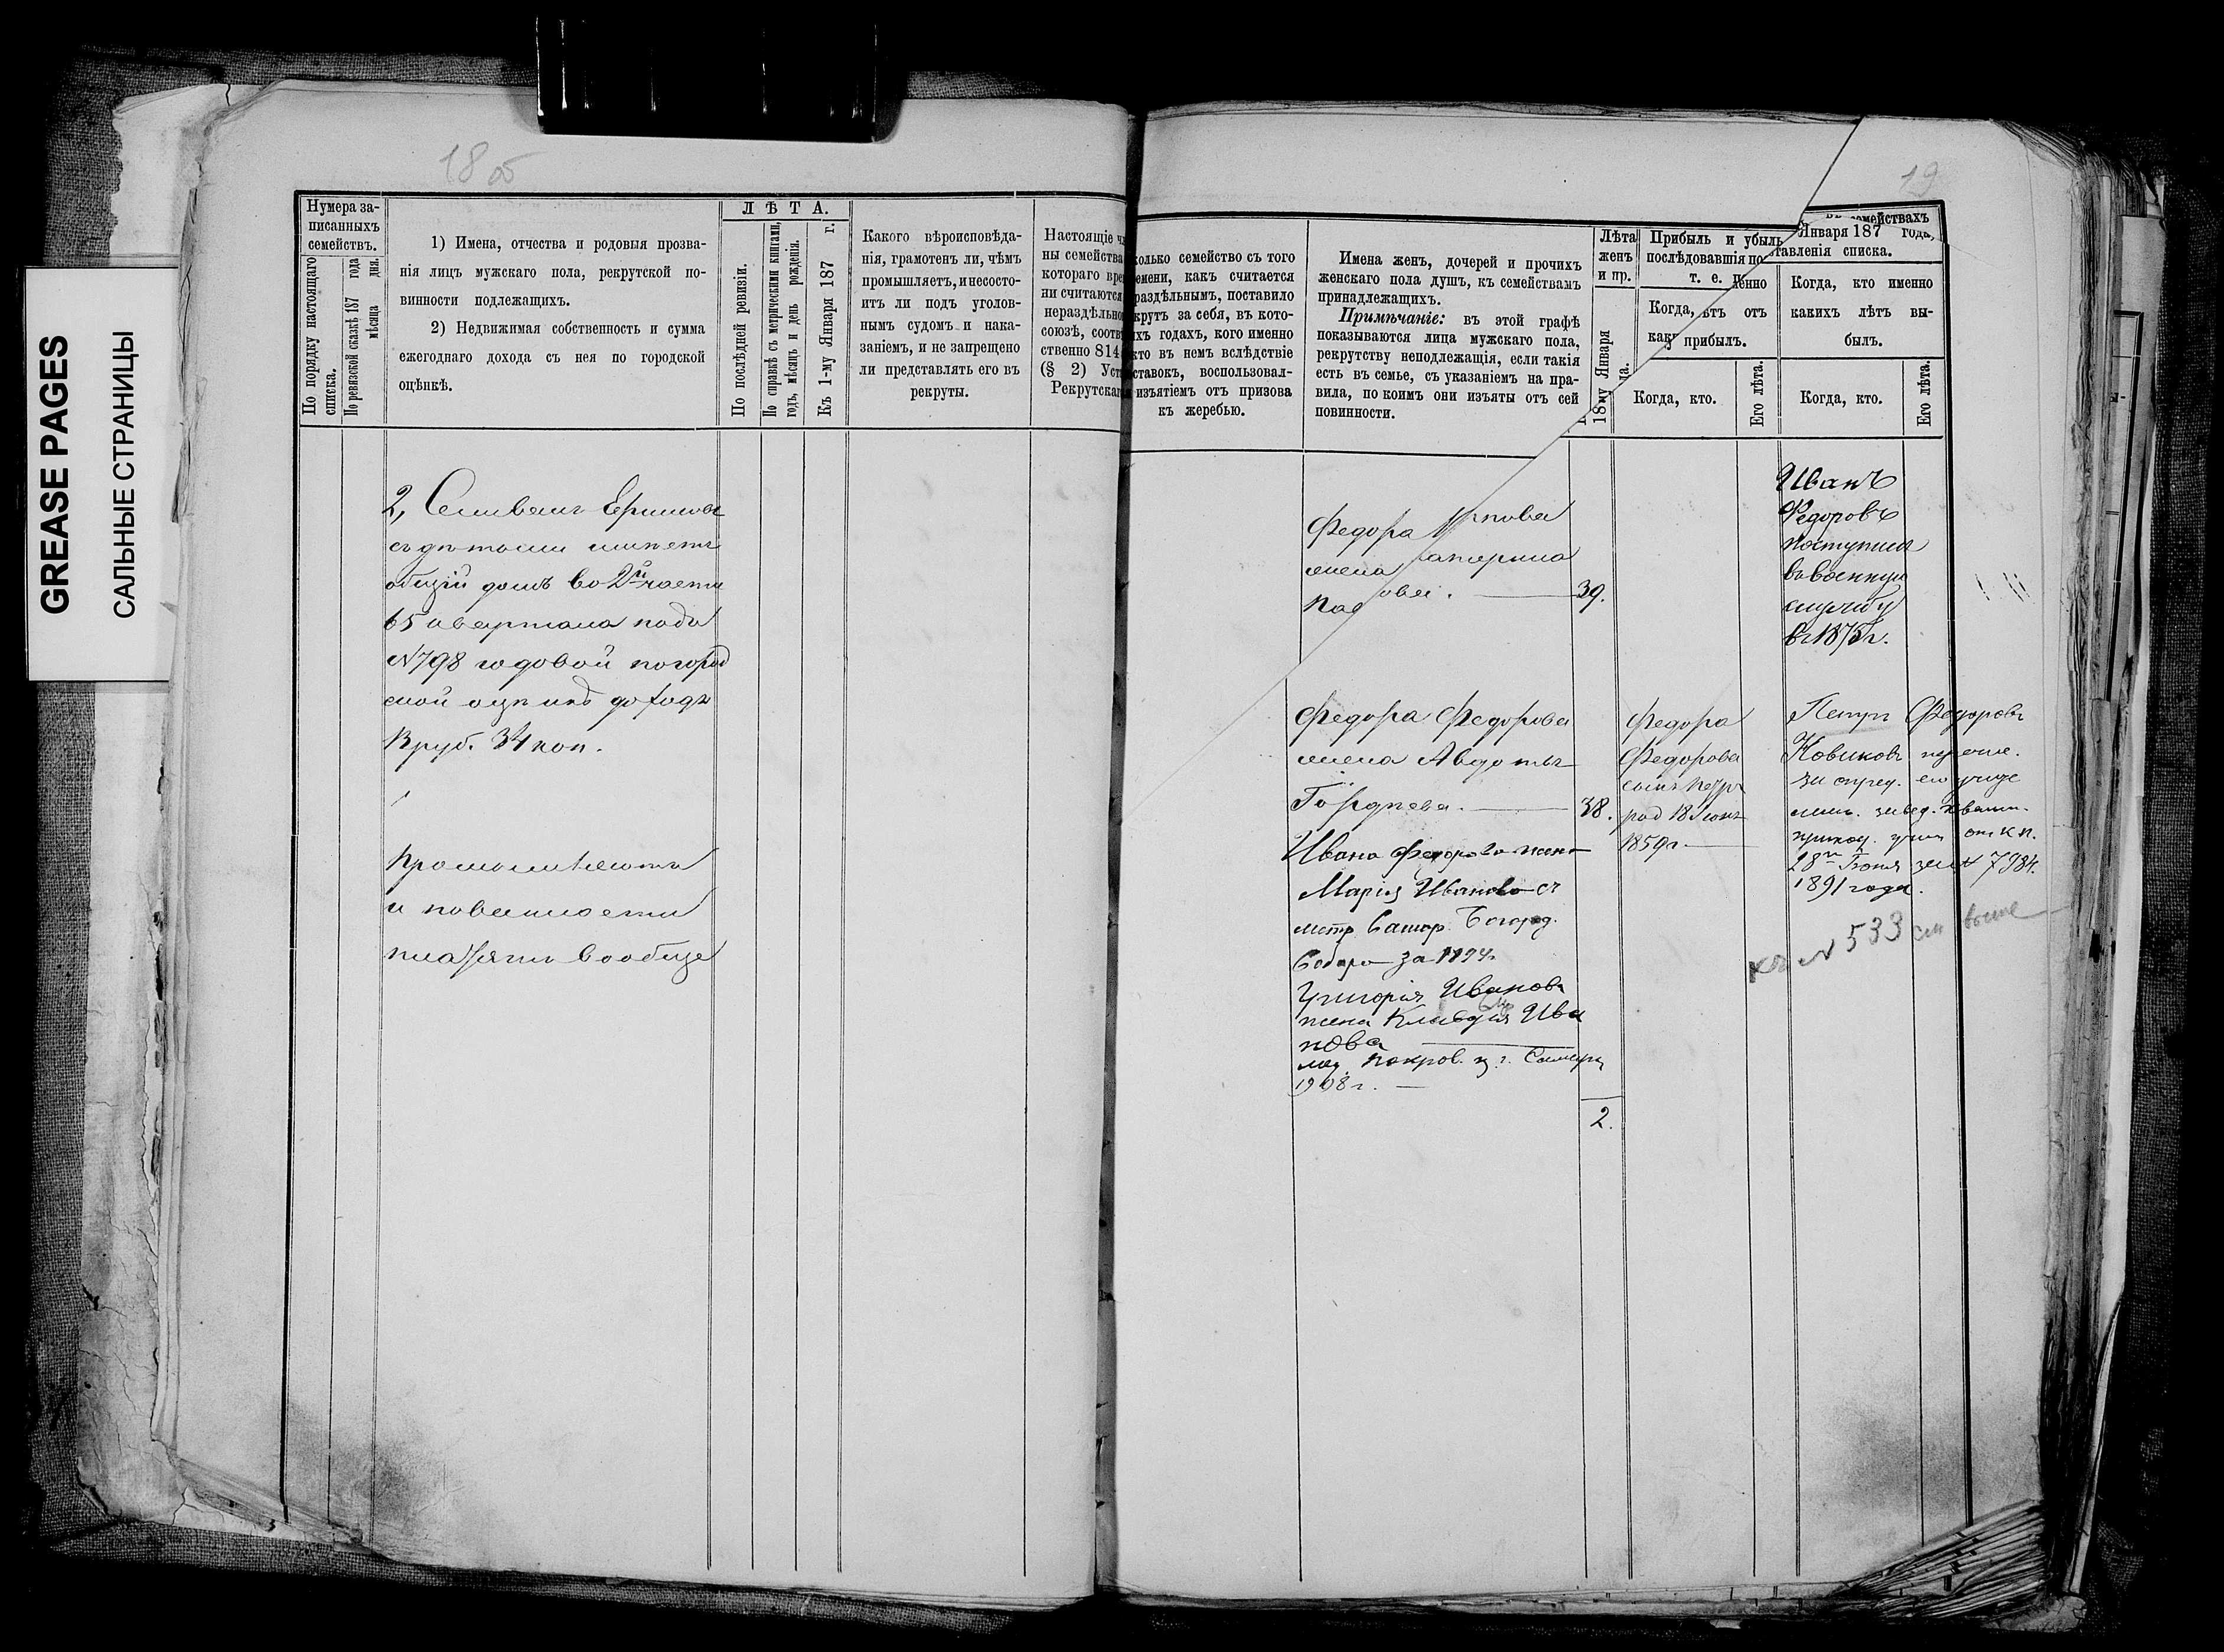 GREASE PAGES
САЛЬНЫЕ СТРАНИЦЫ
18 об
Нумера за-
писанныхъ
семействъ.
По порядку настоящаго
списка.
По ревизской сказкѣ 187 года
мѣсяца дня.
1) Имена, отчества и родовыя прозва-
нія лицъ мужскаго пола, рекрутской по-
винности подлежащихъ.
2) Недвижимая собственность и сумма
ежегоднаго дохода съ нея по городской
оцѣнкѣ.
ЛѢТА.
По послѣдней ревизіи.
По справкѣ съ метрическими книгами,
годъ, мѣсяцъ и день рожденія.
Къ 1-му Января 187 г.
Какого вѣроисповѣда-
нія, грамотенъ ли, чѣмъ
промышляетъ, и несосто-
итъ ли подъ уголов-
нымъ судомъ и нака-
заніемъ, и не запрещено
ли представлять его въ
рекруты.
Настоящіе ч
ны семейства
котораго вре
ни считаются
нераздѣльно
союзѣ, соотв
ственно 814
(§ 2) Уст
Рекрутска
2, Селиванъ Ершовъ
съ дѣтьми имѣетъ
общій домъ во 2й части
65 квартала подъ
№798 годовой по город
ской оцѣнкѣ доходъ
руб. 34 коп.
Промышляютъ
и повинности
платятъ вообще
19
олько семейство съ того
емени, какъ считается
раздѣльнымъ, поставило
крутъ за себя, въ кото-
хъ годахъ, кого именно
кто въ немъ вслѣдствіе
ставокъ, воспользовал-
изъятіемъ отъ призова
къ жеребью.
Имена женъ, дочерей и прочихъ
женскаго пола душъ, къ семействамъ
принадлежащихъ.
Примѣчаніе: въ этой графѣ
показываются лица мужскаго пола,
рекрутству неподлежащія, если такія
есть въ семье, съ указаніемъ на пра-
вила, по коимъ они изъяты отъ сей
повинности.
Лѣта
женъ
и пр.
18 му Января
да.
Прибыль и убыль
послѣдовавшія по
т. е.
семействахъ
Января 187 года,
тавленія списка.
Когда,
как
енно
ѣтъ отъ
прибылъ.
Когда, кто именно
какихъ лѣтъ вы-
былъ.
Когда, кто.
Его лѣта.
Когда, кто.
Его лѣта.
Федора
жена атерина
Пав ова. 39.
Федора Федорова
жена Авдотья
Гордѣева. 38.
Ивана Федорова жена
Марія Иванова съ
метр. Самар. Богород.
Собора за
Григорія Иванова
жена Клавдія Ива
нова
Покров. ц. г. Самары
1908 г.
2.
Федора
Федорова
сынъ Петръ
род 18 Іюня
1859 г.
Иванъ
Федоровъ
поступилъ
въ военную
службу
въ 1875 г.
Петръ Федоровъ
Новиковъ
за опред. его
28го Іюня за № 7984.
1891 года.
къ № 533 см выше